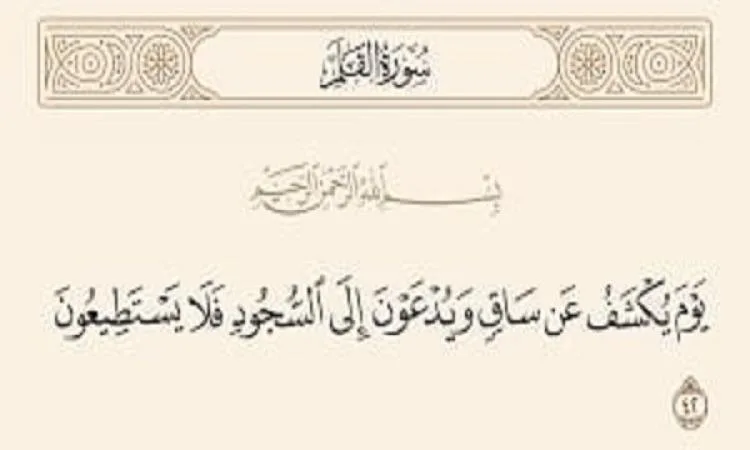 سُورَةُ القَلَمِ
بِسْمِ اللَّهِ الرَّحْمَنِ الرَّحِيمِ
يَوْمَ يُكْشَفُ عَن سَاقٍ وَيُدْعَوْنَ إِلَى ٱلسُّجُودِ فَلَا يَسْتَطِيعُونَ
٤٢